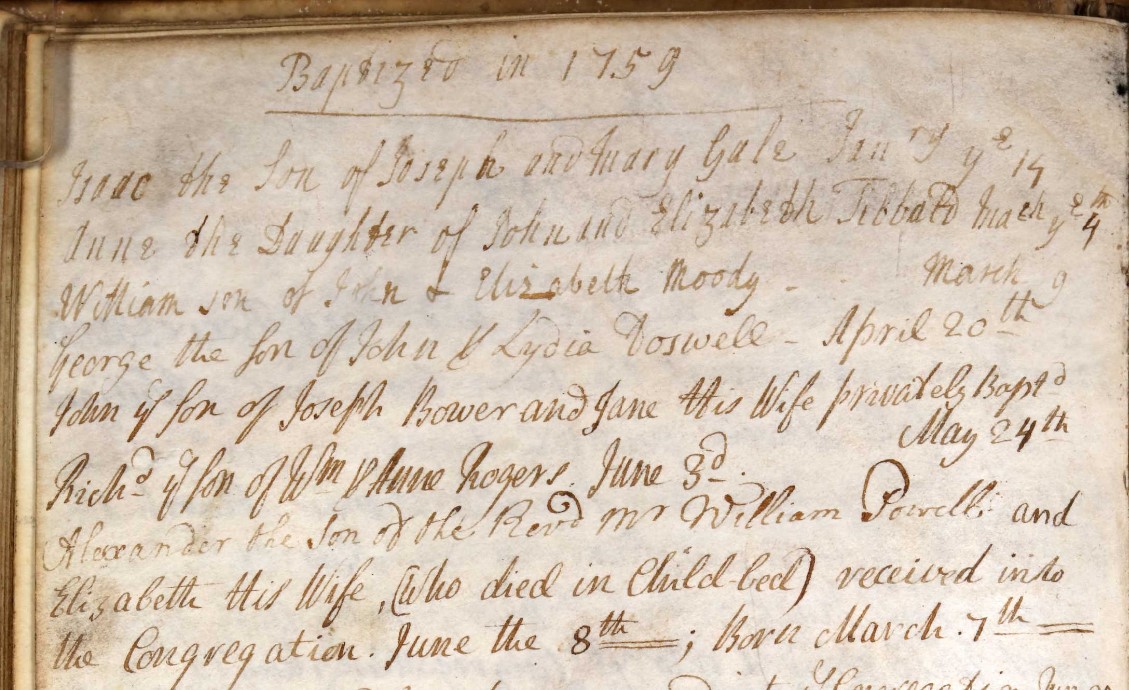 Baptized in 1759
Isaac the Son of Joseph and Mary Gale Janry ye 14
Anne the Daughter of John and Elizabeth Tibbatd Mach ye 4th
William son of John & Elizabeth Moody - March 9
George the son of John & Lydia Doswell - April 20th
John ye son of Joseph Bower and Jane His Wife privately Baptd
May 24th
Richd ye son of Wm & Anne Rogers. June 3d.
Alexander the Son of the Revd Mr William Powell and
Elizabeth His Wife, (who died in Child-bed) received into
the Congregation. June the 8th; Born March. 7th